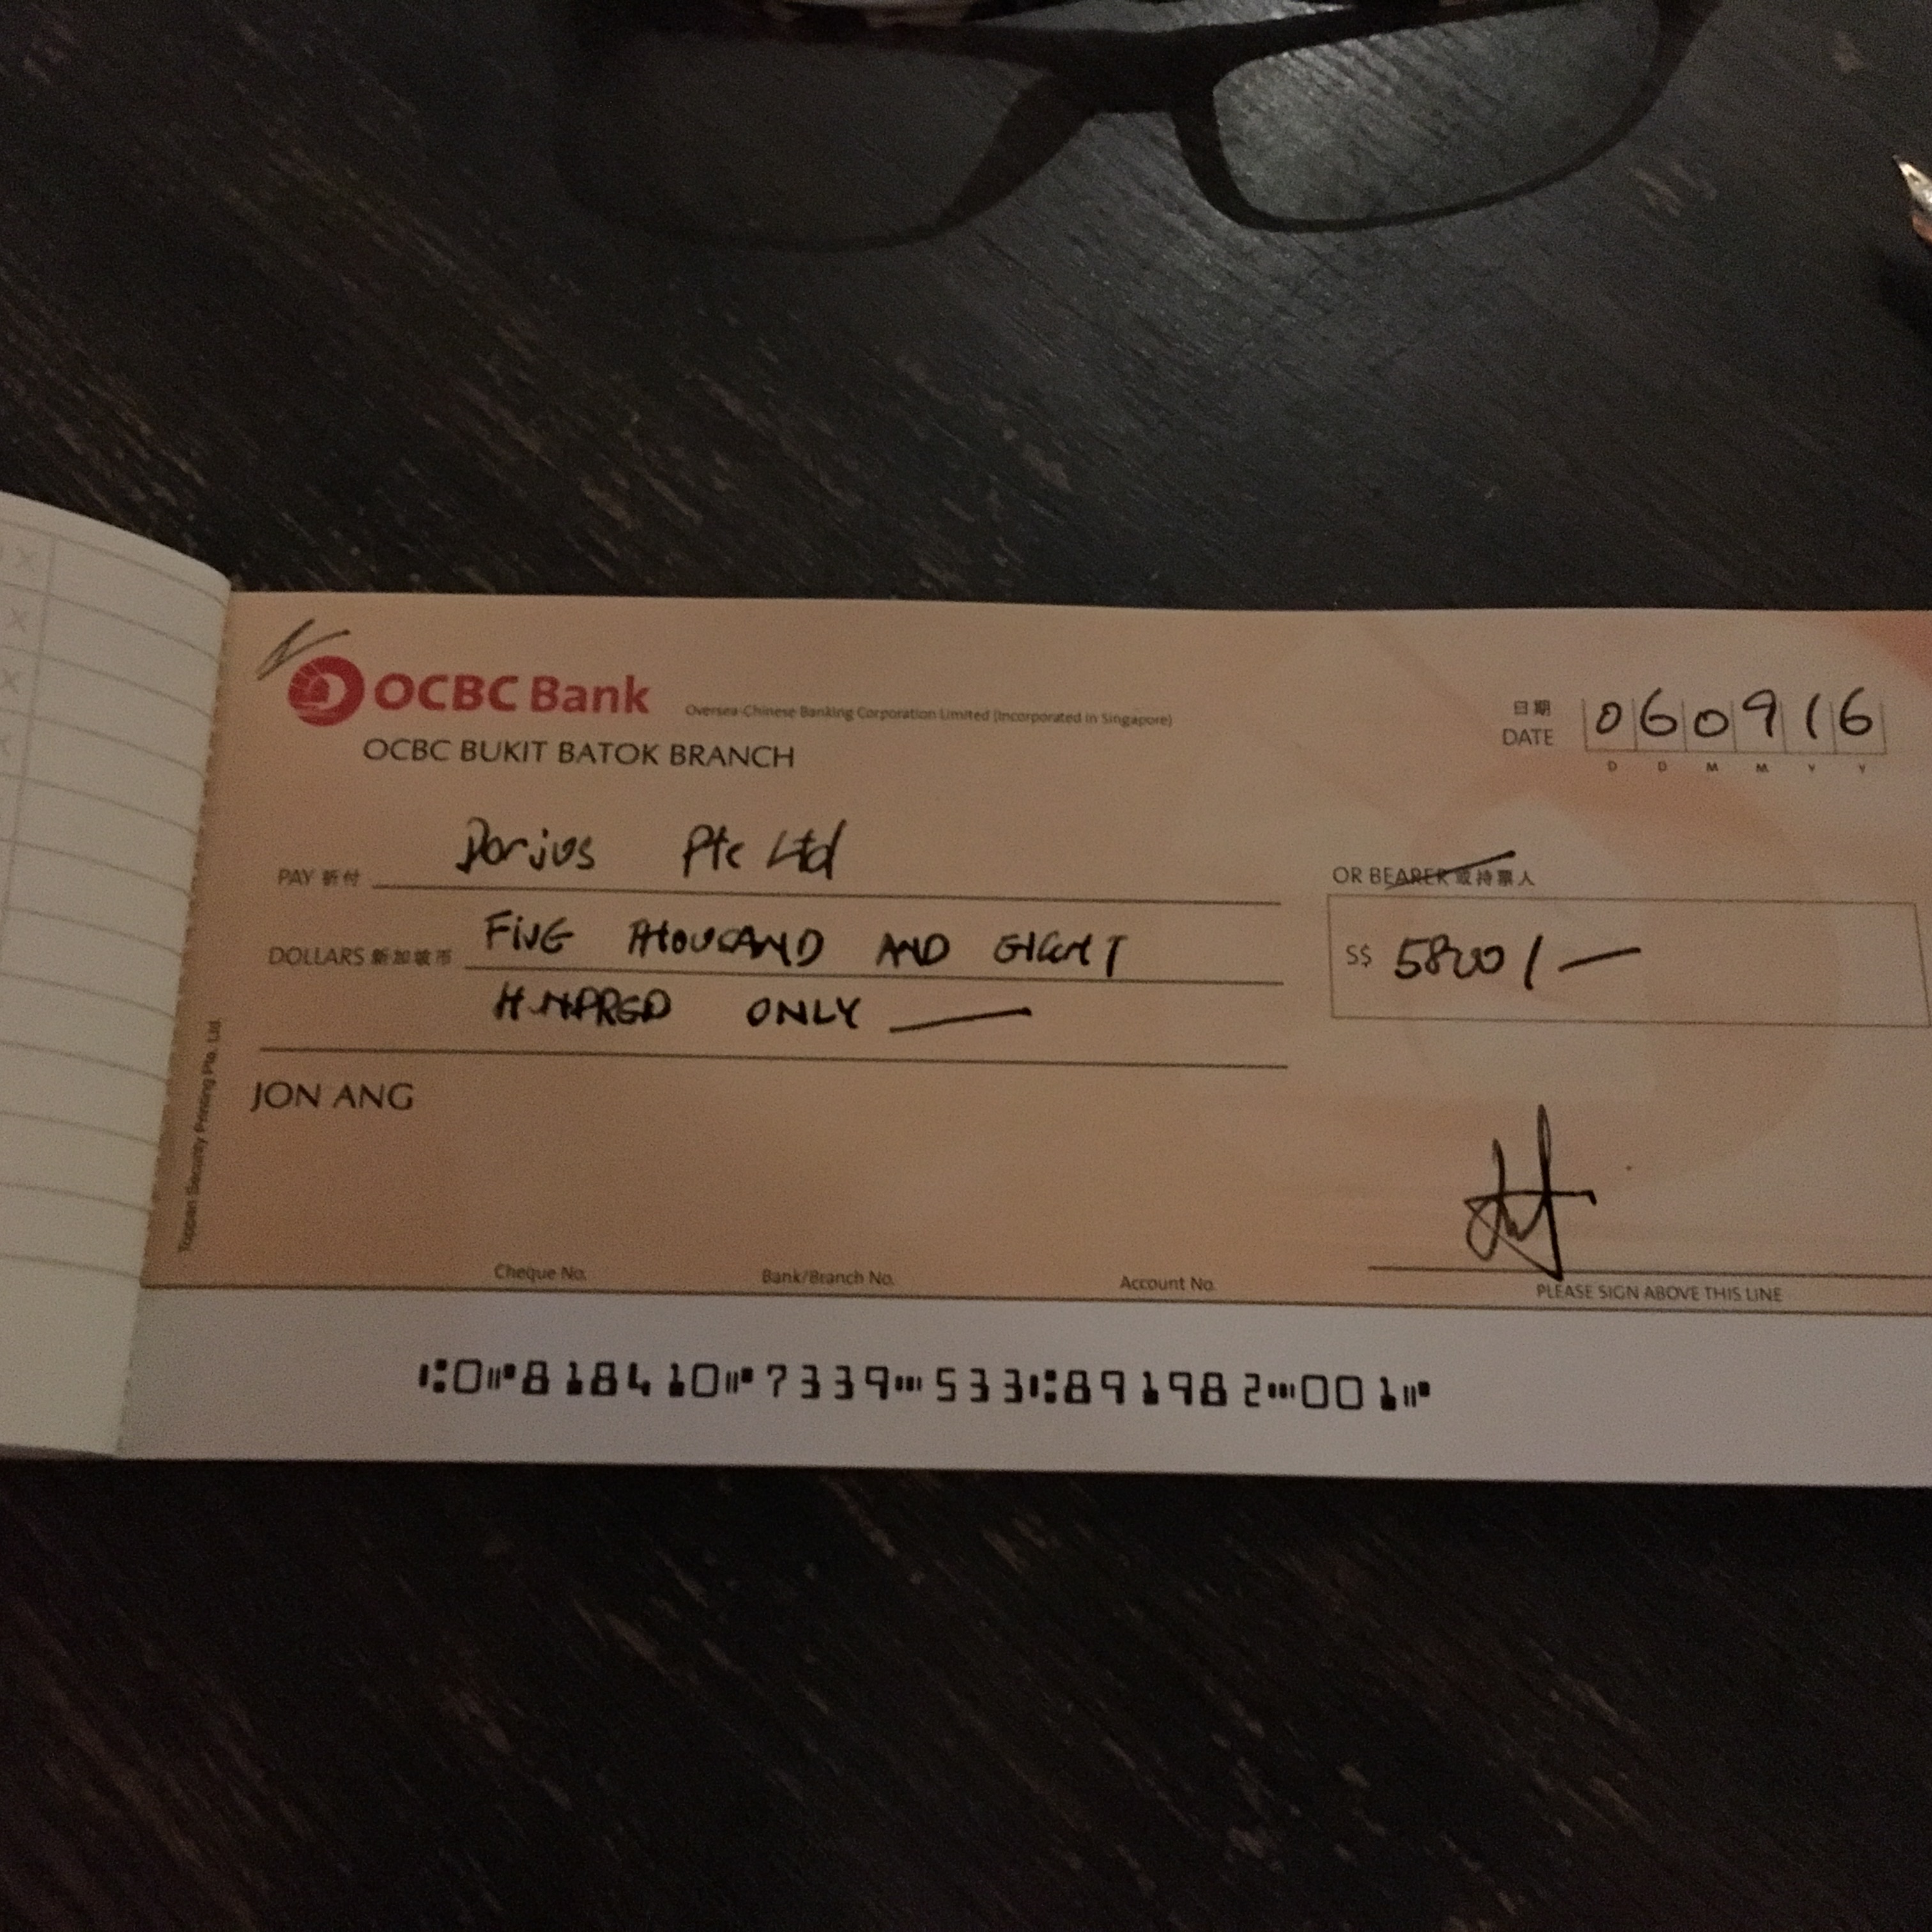 OCBC Bank Oversea-Chinese Banking Corporation Limited (Incorporated in Singapore)
OCBC BUKIT BATOK BRANCH
日期
DATE 060916
D D M M Y Y
PAY 祈付 Darius Pte Ltd
OR BEARER 或持票人
DOLLARS 新加坡币 FIVE THOUSAND AND EIGHT
HUNDRED ONLY —
S$ 5800/—
JON ANG
Toppan Security Printing Pte. Ltd.
Cheque No. Bank/Branch No. Account No.
PLEASE SIGN ABOVE THIS LINE
⑆0⑈818410⑈7339⑉533⑆891982⑉001⑈
X
X
X
X